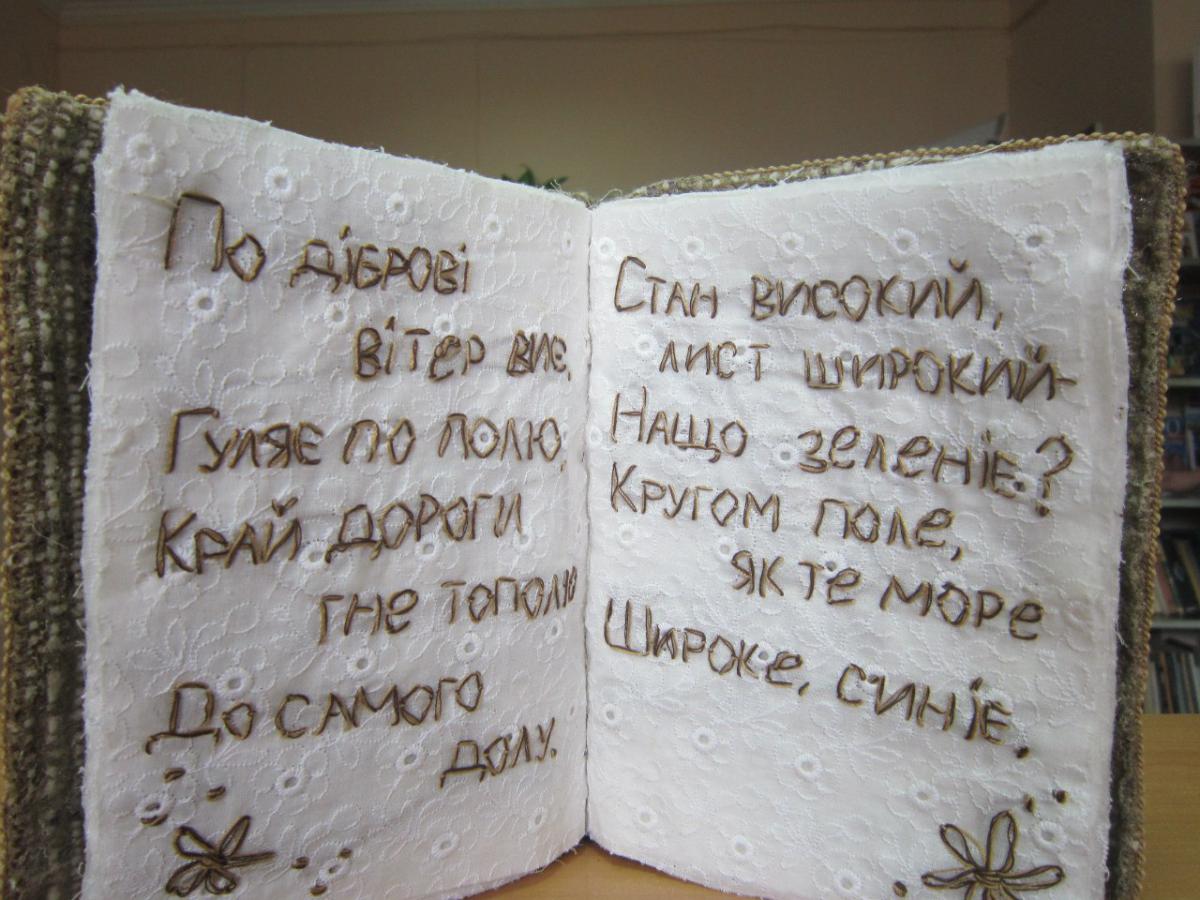 По діброві
вітер виє,
Гуляє по полю,
Край дороги
гне тополю
До самого
долу.
Стан високий,
лист широкий-
Нащо зеленіє?
Кругом поле,
як те море
Широке, синіє.